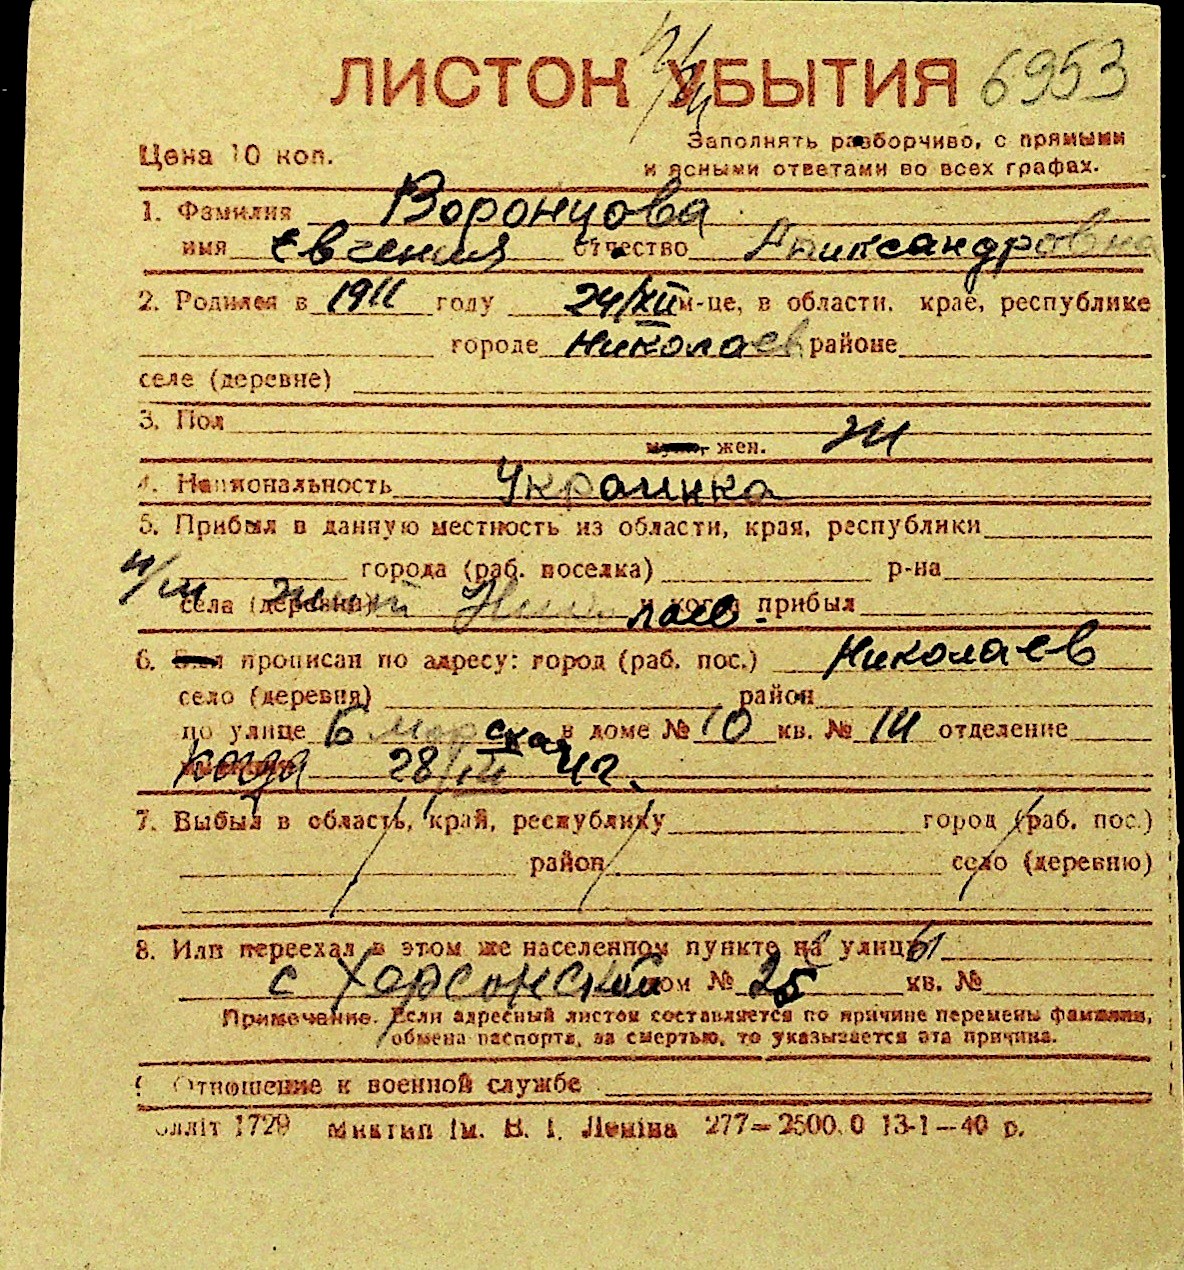 ЛИСТОК УБЫТИЯ 6953
Цена 10 коп.
Заполнять разборчиво, с прямыми
и ясными ответами во всех графах.
1. Фамилия Воронцова
имя Евгения Отчество Александровна
2. Родился в 1911 году 24/XII м-це, в области, крае, республике
городе Николаев районе
селе (деревне)
3. Пол
жен. ж
4. Национальность Украинка
5. Прибыл в данную местность из области, края, республики
города (раб. поселка) р-на
села (деревни) и когда прибыл
6. прописан по адресу: город (раб. пос.) Николаев
село (деревня) район
по улице Б морская в доме № 10 кв. № 14 отделение
когда 28/III 41г.
7. Выбыл в область, край, республику город (раб. пос.)
район село (деревню)
8. Или переехал в этом же населенном пункте на улицы
с Херсонской дом № 25 кв. №
Примечание. Если адресный листок составляется по причине перемены фамилии,
обмена паспорта, за смертью, то указывается эта причина.
Отношение к военной службе
1729 Миктип Ім. В. І. Леніна 277—2500.0 13-1—40 р.